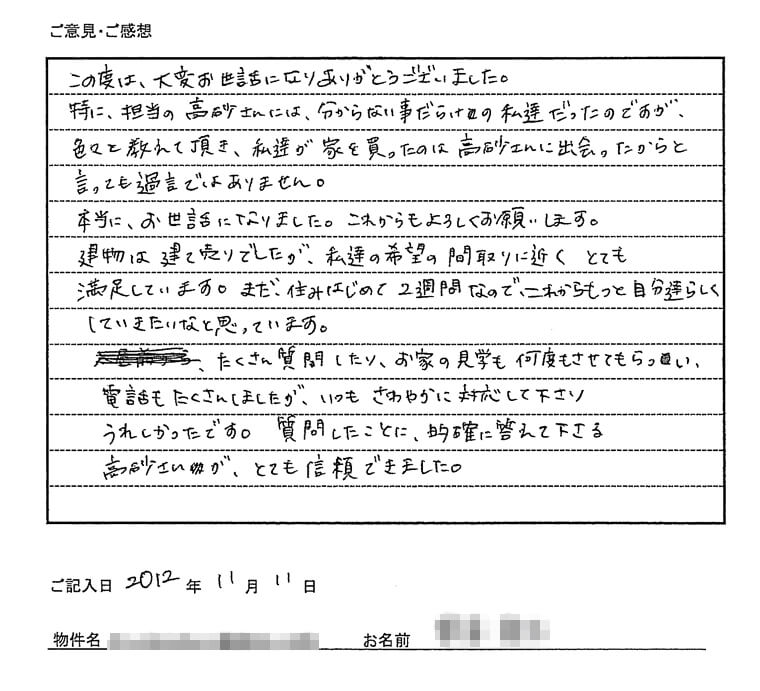 ご意見・ご感想
この度は、大変お世話になりありがとうございました。
特に、担当の高砂さんには、分からない事だらけの私達だったのですが、
色々と教えて頂き、私達が家を買ったのは高砂さんに出会ったからと
言っても過言ではありません。
本当に、お世話になりました。これからもよろしくお願いします。
建物は建て売りでしたが、私達の希望の間取りに近くとても
満足しています。まだ、住みはじめて2週間なので、これからもっと自分達らしく
していきたいなと思っています。
、たくさん質問したり、お家の見学も何度もさせてもらい、
電話もたくさんしましたが、いつもさわやかに対応して下さり
うれしかったです。質問したことに、的確に答えて下さる
高砂さんが、とても信頼できました。
ご記入日 2012年11月11日
物件名 お名前